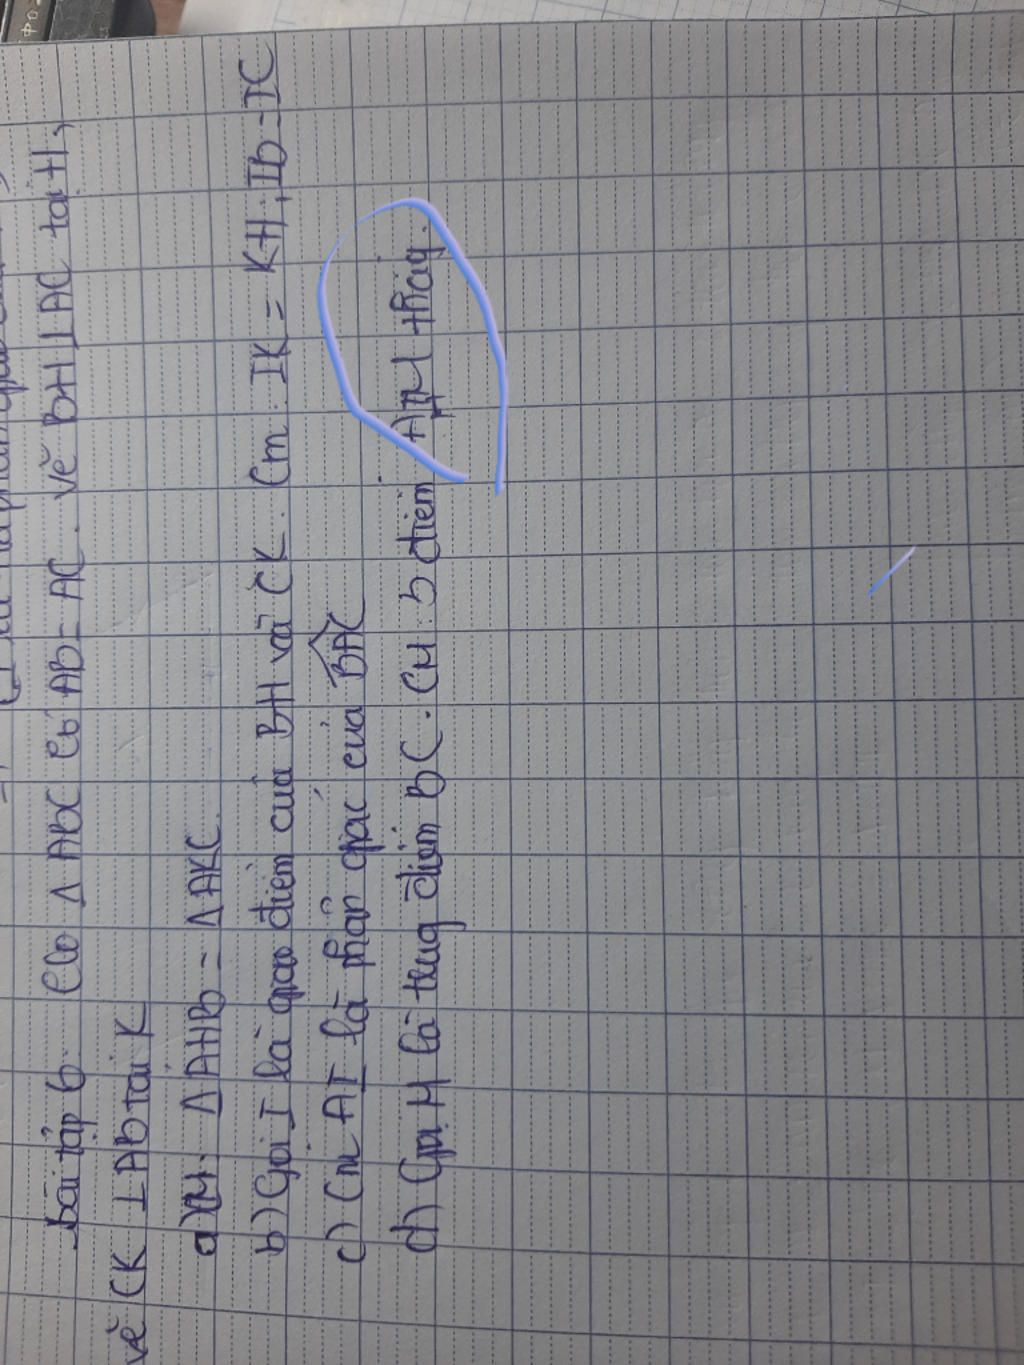 bài tập 6. Cho Δ ABC có AB = AC. vẽ BH ⊥ AC tại H,
vẽ CK ⊥ AB tại K
a) CM. Δ AHB = Δ AKC.
b) Gọi I là giao điểm của BH và CK. Cm. IK = KH; Ib = IC
c) Cm AI là phân giác của BAC
d) Gọi M là trung điểm BC. CM: 3 điểm thẳng.